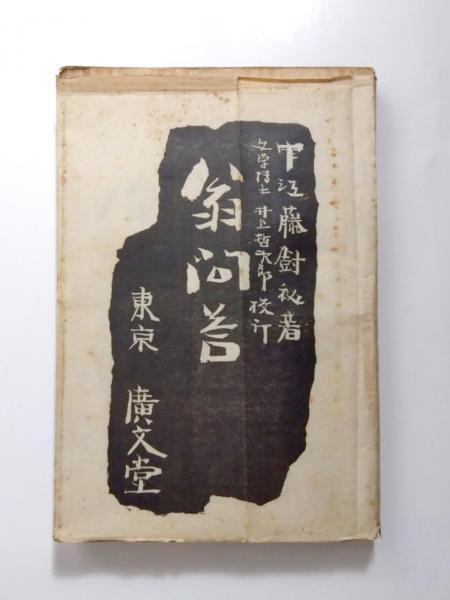 中江藤樹祕著
文学博士 井上哲次郎 校訂
翁問答
東京 廣文堂